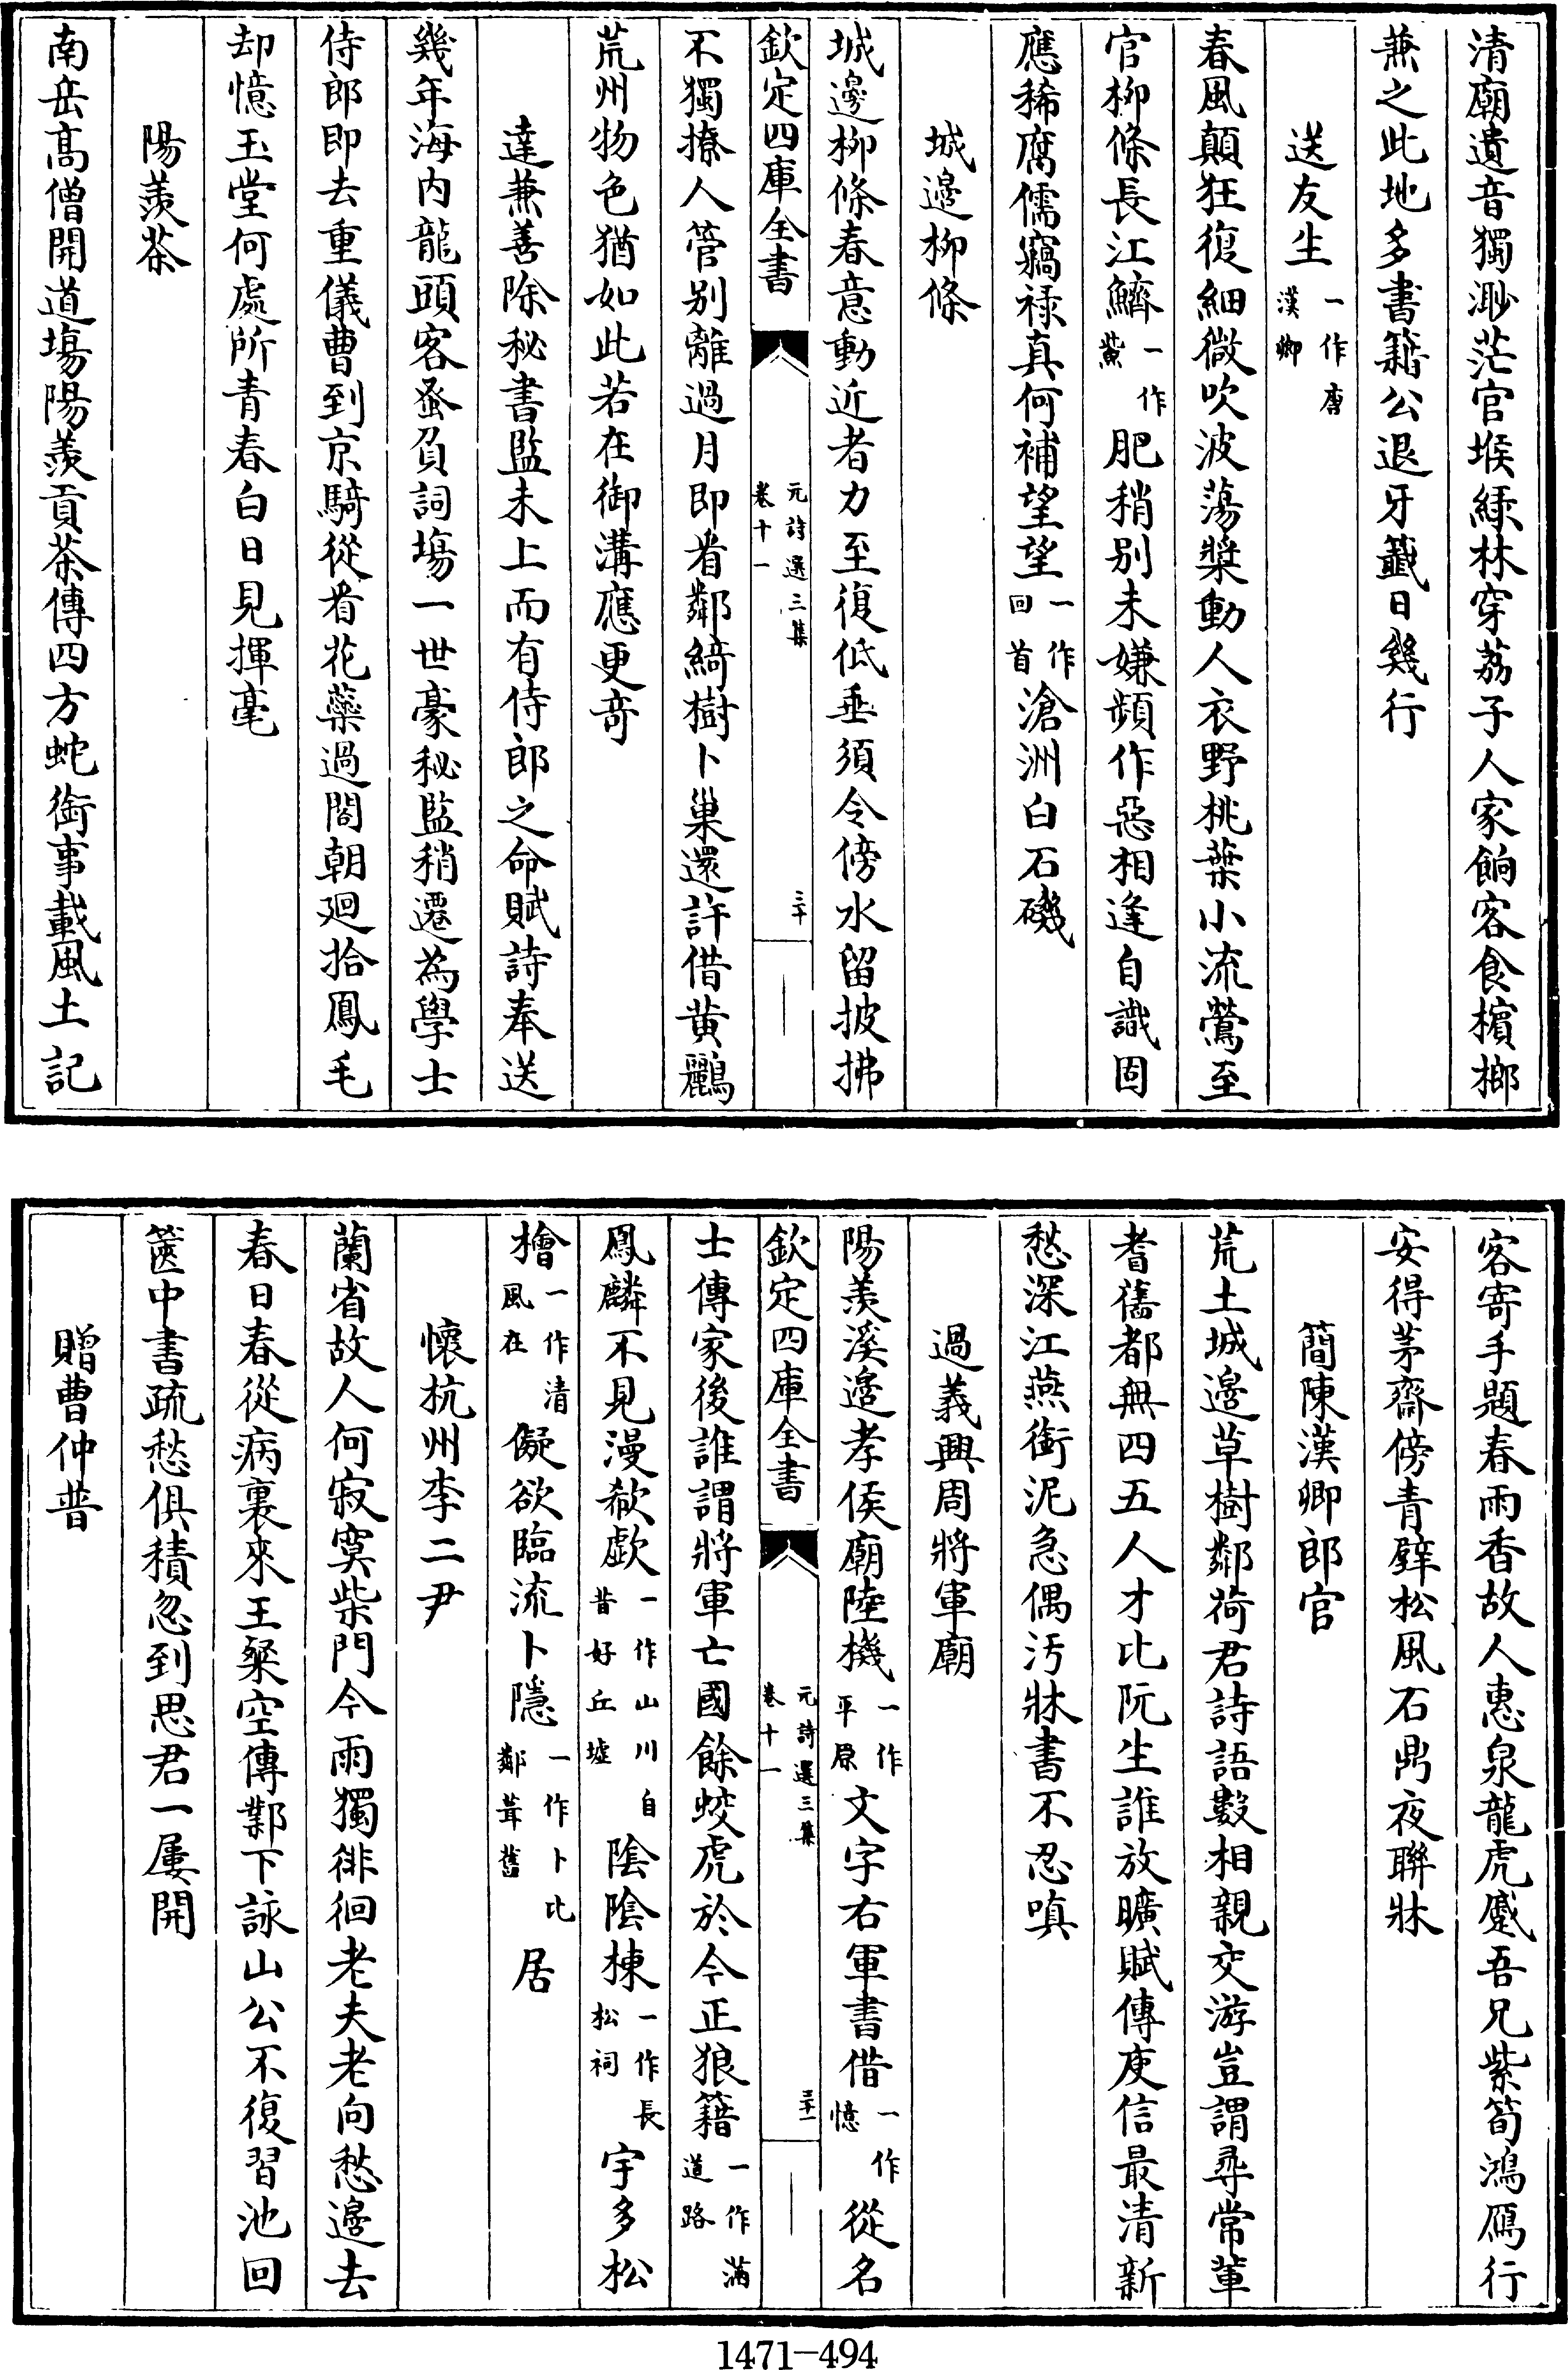 清廟遺音獨渺茫官堠緑林穿荔子人家餉客食檳榔
兼之此地多書籍公退牙籤日幾行
送友生一作唐漢卿
春風顛狂復細微吹波蕩槳動人衣野桃葉小流鶯至
官柳條長江鱭一作鮆肥稍別未嫌頻作惡相逢自識固
應稀腐儒竊禄真何補望望一作回首滄洲白石磯
城邊柳條
城邊柳條春意動近者力至復低垂須令傍水留披拂
欽定四庫全書
元詩選三集
卷十一
三十
不獨撩人管别離過月即看鄰綺樹卜巢還許借黄鸝
荒州物色猶如此若在御溝應更竒
達兼善除秘書監未上而有侍郎之命賦詩奉送
幾年海内龍頭客蚤負詞場一世豪秘監稍遷為學士
侍郎即去重儀曹到京騎從看花藥過閤朝廻拾鳳毛
却憶玉堂何處所青春白日見揮毫
陽羨茶
南岳髙僧開道場陽羨貢茶傳四方蛇銜事載風土記
客寄手題春雨香故人惠泉龍虎蹙吾兄紫筍鴻鴈行
安得茅齋傍青壁松風石鼎夜聯牀
簡陳漢卿郎官
荒土城邊草樹鄰荷君詩語數相親交游豈謂尋常軰
耆舊都無四五人才比阮生誰放曠賦傳庾信最清新
愁深江燕銜泥急偶汚牀書不忍嗔
過義興周將軍廟
陽羨溪邊孝侯廟陸機一作平原文字右軍書借一作憶從名
欽定四庫全書
元詩選三集
卷十一
三十一
士傳家後誰謂將軍亡國餘蛟虎於今正狼籍一作滿道路
鳳麟不見漫欷歔一作山川自昔好丘墟陰陰棟一作長松祠宇多松
檜一作清風在儗欲臨流卜隱一作卜比鄰葺舊居
懷杭州李二尹
蘭省故人何寂寞柴門今雨獨徘徊老夫老向愁邊去
春日春從病裏來王粲空傳鄴下詠山公不復習池回
篋中書疏愁俱積忽到思君一屢開
贈曹仲普
1471-494